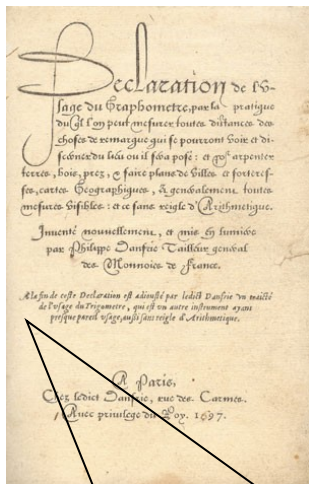 Declaration de l'v-
sage du Graphometre, par la pratique
du quel l'on peut mesurer toutes distances des
choses de remarque qui se pourront voir et di-
scerner du lieu ou il sera posé: et pour arpenter
terres, bois, prez, & faire plans de villes et forteres-
ses, cartes Geographiques, & generalement toutes
mesures visibles: et ce sans reigle d'Arithmetique.
Inventé nouvellement, et mis en lumiere
par Philippe Danfrie Tailleur general
des Monnoies de France.
A la fin de ceste Declaration est adiousté par ledict Danfrie vn traicté
de l'vsage du Trigometre, qui est vn autre instrument ayant
presque pareil vsage, aussi sans reigle d'Arithmetique.
A Paris,
Chez ledict Danfrie, rue des Carmes.
Auec priuilege du Roy. 1597.